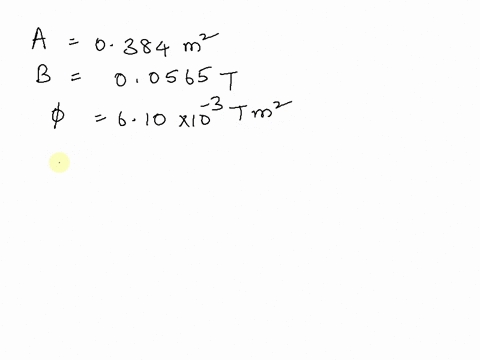 A = 0.384 m²
B = 0.0565 T
ϕ = 6.10 ×10⁻³ T m²